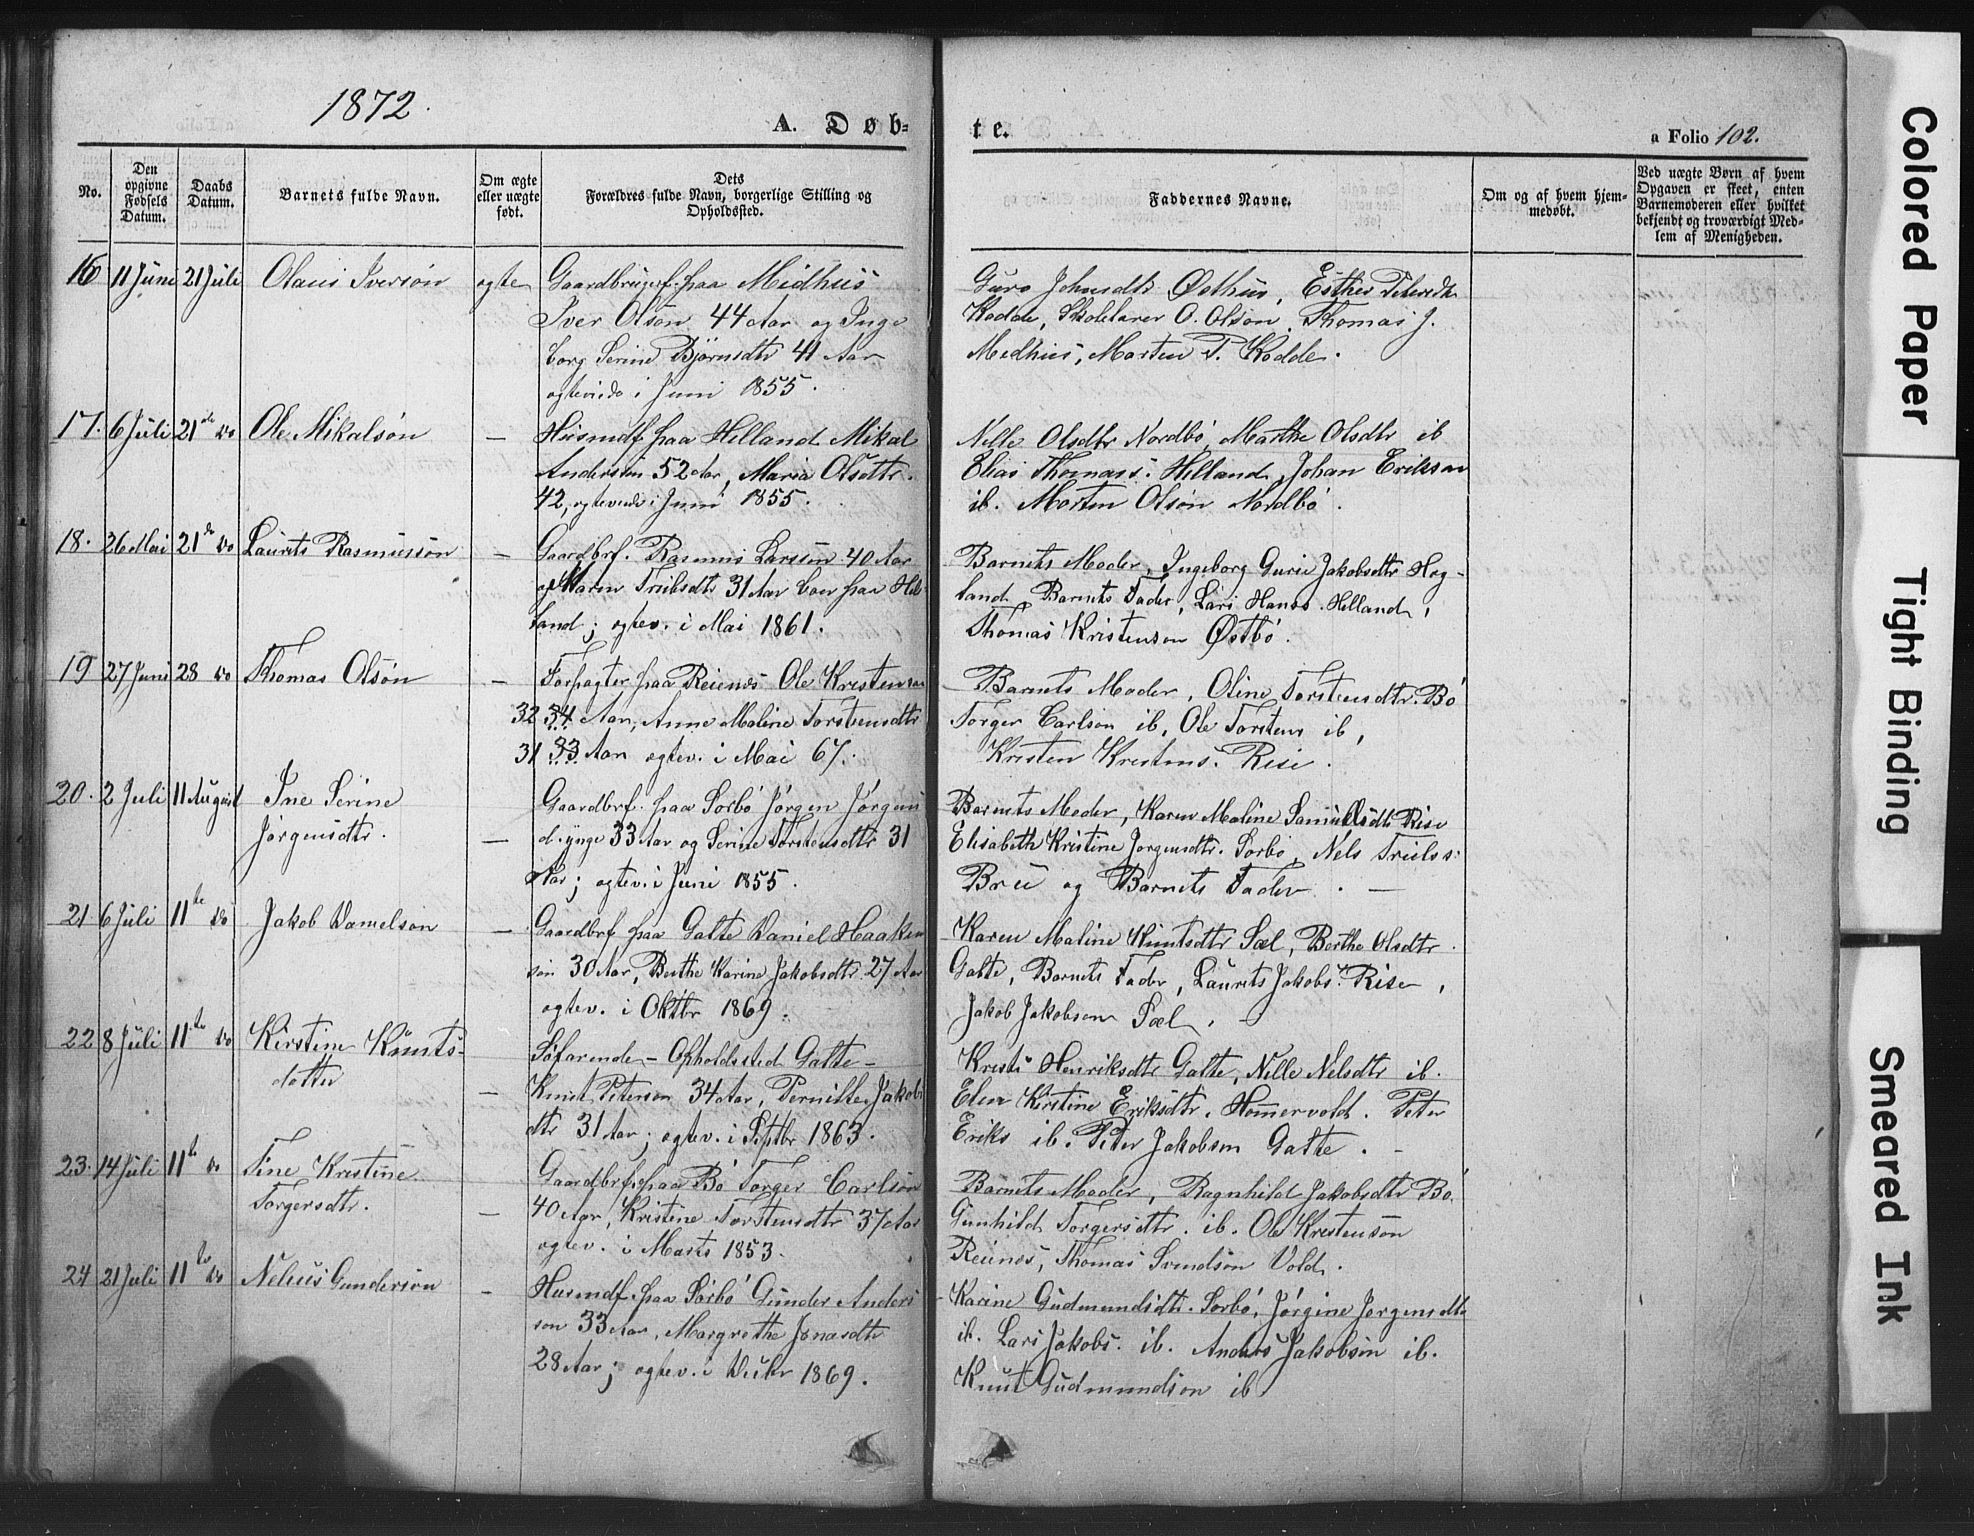 1872.
A. Døb-
te.
a Folio 102.
No.
Den opgivne Fødsels Datum.
Daabs Datum.
Barnets fulde Navn.
Om ægte eller uægte født.
Dets Forældres fulde Navn, borgerlige Stilling og Opholdssted.
Faddernes Navne.
Om og af hvem hjemmedøbt.
Ved uægte Børn af hvem Opgaven er skeet, enten Barnemoderen eller hvilket bekjendt og troværdigt Medlem af Menigheden.
16 11 Juni 21 Juli Olaus Iversøn ægte Gaardbruger paa Midhus
Iver Olsøn 44 Aar og Inge
borg Serine Bjørnsdtr 41 Aar
ægteviede i Juni 1855.
Guro Johnsdtr Østhus, Esther Petersdtr
Kodde, Skolelærer O. Olsøn, Thomas J.
Midhus, Morten P. Kodde.
17. 6 Juli 21de do Ole Mikalsøn — Husmdf paa Helland Mikal
Andersøn 52 Aar, Maria Olsdtr.
42, ægteviede i Juni 1855.
Nelle Olsdtr Nordbö, Marthe Olsdtr ib
Elias Thomass. Helland, Johan Eriksøn
ib. Morten Olsøn Nordbö.
18. 26 Mai 21de do Laurits Rasmussøn — Gaardbrf. Rasmus Larsøn 40 Aar
og Karen Truelsdtr 31 Aar boer paa Hel-
land; ægtev. i Mai 1861.
Barnets Moder, Ingeborg Gurie Jakobsdtr Hog-
land, Barnets Fader, Lars Hans. Helland,
Thomas Kristensøn Østbö.
19 27 Juni 28 do Thomas Olsøn — Forpagter paa Reienæs Ole Kristensøn
32 34 Aar, Anne Maline Torstensdtr
31 33 Aar ægtev. i Mai 67.
Barnets Moder, Oline Torstensdtr. Bö
Torger Carlsøn ib, Ole Torstens ib,
Kristen Kristens. Rise.
20. 2 Juli 11 August Ine Serine
Jørgensdtr. — Gaardbrf. paa Sørbö Jørgen Jørgens
d. ynge 33 Aar og Serine Torstensdtr 31
Aar; ægtev. i Juni 1855.
Barnets Moder, Karen Maline Samuelsdtr Rise
Elisabeth Kristine Jørgensdtr. Sørbö, Nels Truelss:
Brü og Barnets Fader. —
21. 6 Juli 11te do Jakob Danielsøn — Gaardbrf paa Galte Daniel Haaken
søn 30 Aar, Berthe Karine Jakobsdtr 27 Aar
ægtev. i Oktbr 1869.
Karen Maline Knutsdtr Sæl, Berthe Olsdtr.
Galte, Barnets Fader, Laurits Jakobs. Rise,
Jakob Jakobsen Sæl. —
22 8 Juli 11te do Kirstine Knuts-
datter — Søfarende – Opholdssted Galte –
Knut Petersøn 34 Aar, Pernille Jakobs
dtr 31 Aar; ægtev. i Septbr 1863.
Kristi Henriksdtr Galte, Nille Nelsdtr ib.
Elen Kirstine Eriksdtr. Hommervold. Peter
Eriks ib. Peter Jakobsen Galte. —
23. 14 Juli 11te do Tine Kristine
Torgersdtr. — Gaardbrf. paa Bö Torger Carlsøn
40 Aar, Kristine Torstensdtr 37 Aar
ægtev. i Marts 1853.
Barnets Moder, Ragnhild Jakobsdtr Bö.
Gunhild Torgersdtr. ib. Ole Kristensøn
Reienæs, Thomas Svendsøn Vold.
24 21 Juli 11te do Nelius Gundersøn — Husmdf. paa Sørbö Gunder Anders
søn 33 Aar, Margrethe Jonasdtr
28 Aar; ægtev. i Decbr 1869.
Karine Gudmundsdtr. Sørbö, Jørgine Jørgensdtr
ib. Lars Jakobs. ib. Anders Jakobsøn ib.
Knut Gudmundsøn ib
Colored Paper
Tight Binding
Smeared Ink